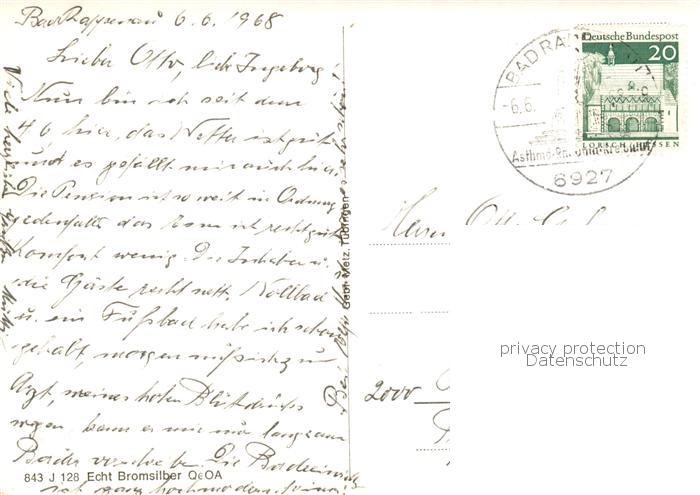 Bad Rappenau 6.6.1968
Lieber Otto, liebe Ingeborg!
Nun bin ich seit dem
4.6 hier, das Wetter ist gut
und es gefällt mir auch hier.
Die Pension ist soweit in Ordnung
jedenfalls das Essen ist recht gut
Komfort wenig. Die Inhaber u.
die Gäste recht nett. Vollbad
u. ein Fußbad habe ich schon
gehabt, morgen muß ich zum
Arzt, meines hohen Blutdrucks
wegen, kann er mir nur langsam
Bäder verschreiben. Die Badeeinricht
ist ganz hochmodern.
Viele herzliche Grüße
843 J 128 Echt Bromsilber
Gebr. Metz, Tübingen
BAD RAPPENAU
-6.6.
6927
Deutsche Bundespost
20
LORSCH HESSEN
Herrn
2000
privacy protection
Datenschutz